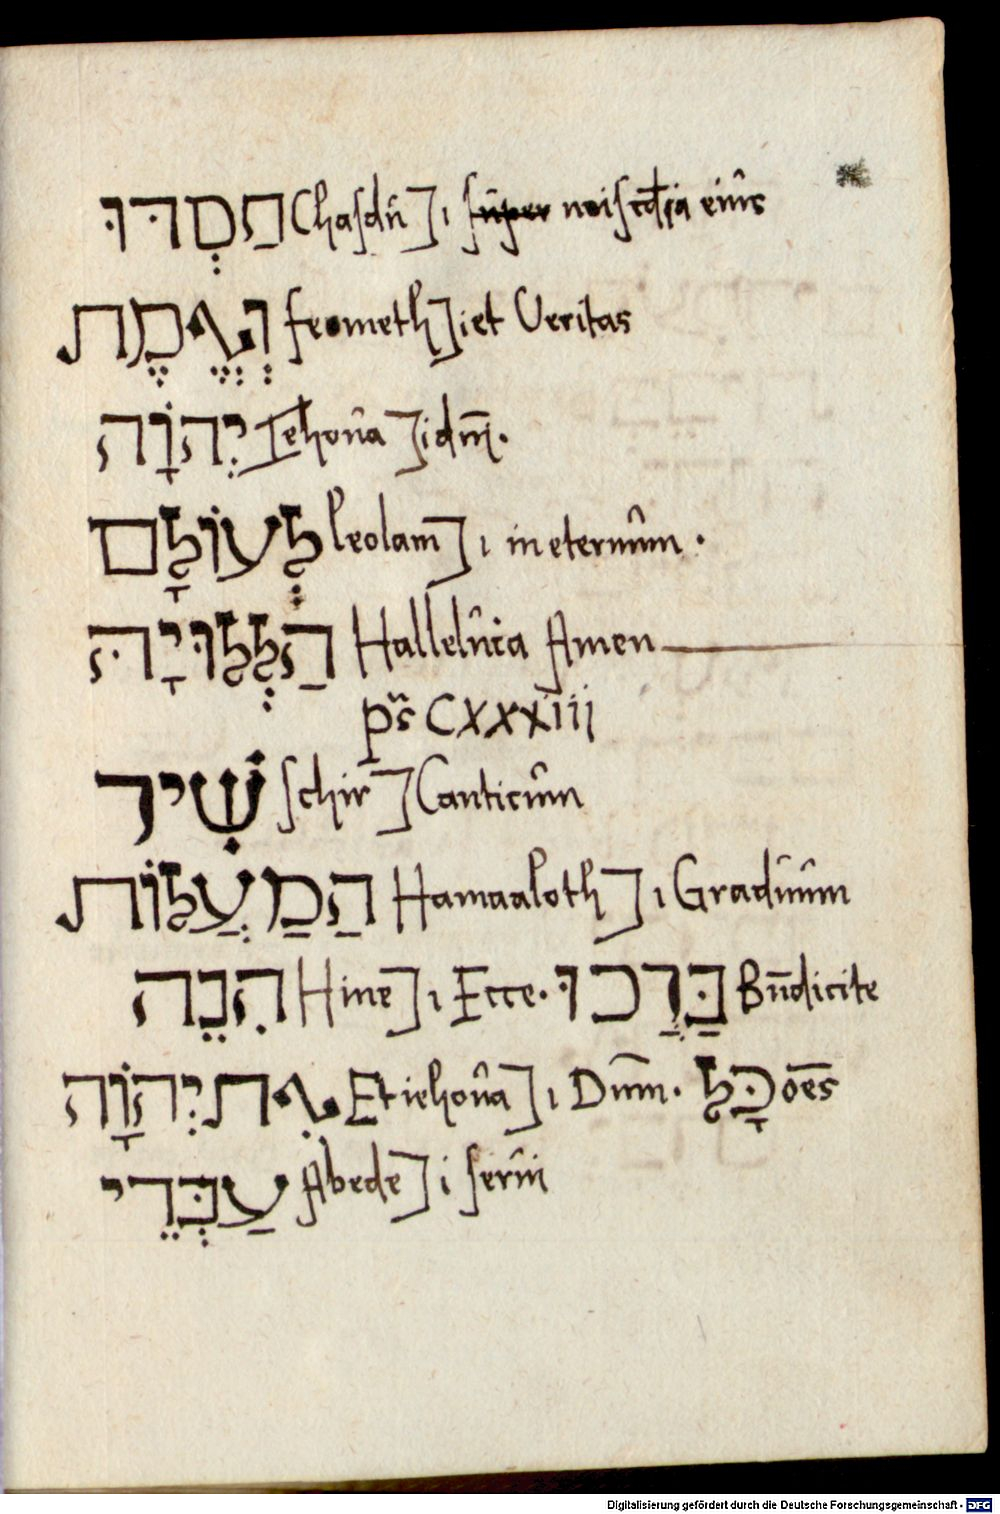 חַסְדּוּ Chasdu ]i super noiscdia eius
וְאֱמֶת feometh ]i et Veritas
יְהוָֹה Iehoua ]i dm̄.
לְעוֹלָם leolam ]i in eternum.
הַלְלוּיָהּ Halleluia Amen
ps CXXXIII
שִׁיר schir ]i Canticum
הַמַעֲלוֹת Hamaaloth ]i Graduum
הִנֵה Hine ]i Ecce. בַּרֲכוּ Bn̄dicite
את יְהוָֹה Et iehoua ]i Dnm. כָּל oēs
עַבְּדֵי Abede ]i serui
Digitalisierung gefördert durch die Deutsche Forschungsgemeinschaft - DFG